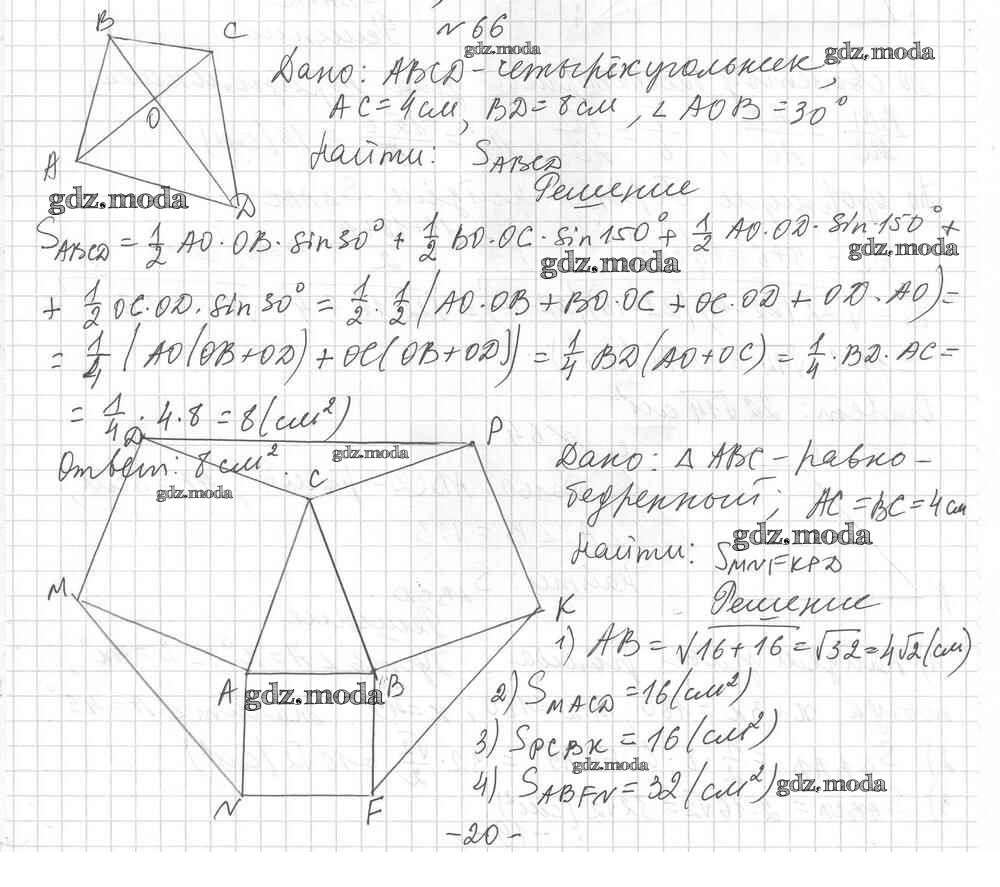 №66
gdz.moda
B C
O
A D
Дано: ABCD - четырёхугольник, gdz.moda
AC = 4 см, BD = 8 см, ∠ AOB = 30°
Найти: S_ABCD
gdz.moda
Решение
S_ABCD = 1/2 AO · OB · sin 30° + 1/2 BO · OC · sin 150° + 1/2 AO · OD · sin 150° +
gdz.moda gdz.moda
+ 1/2 OC · OD · sin 30° = 1/2 · 1/2 (AO · OB + BO · OC + OC · OD + OD · AO) =
= 1/4 (AO(OB + OD) + OC(OB + OD)) = 1/4 BD(AO + OC) = 1/4 · BD · AC =
= 1/4 · 4 · 8 = 8 (см²)
Ответ: 8 см².
gdz.moda
gdz.moda
D P
C
M K
A B
gdz.moda
N F
Дано: △ ABC - равно-
бедренный; AC = BC = 4 см
gdz.moda
Найти: S_MNFKPD
Решение
1) AB = √16 + 16 = √32 = 4√2 (см)
2) S_MACD = 16 (см²)
3) S_PCBK = 16 (см²)
gdz.moda
4) S_ABFN = 32 (см²) gdz.moda
- 20 -